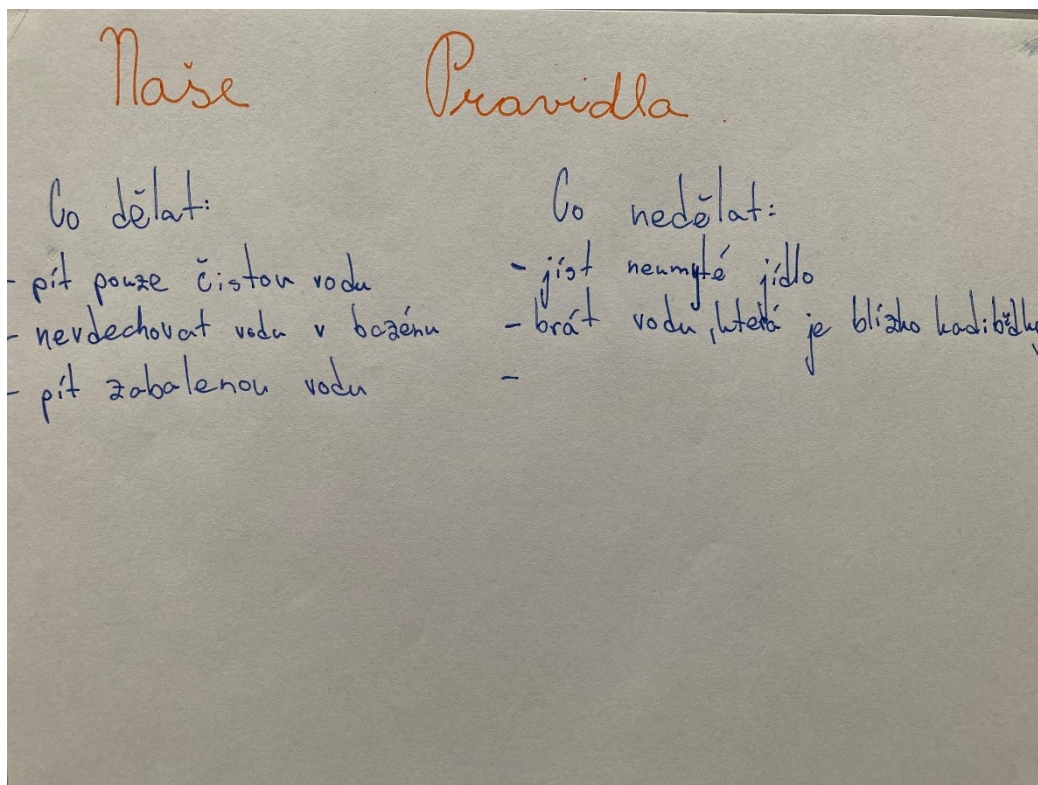 Naše Pravidla
Co dělat:
- pít pouze čistou vodu
- nevdechovat vodu v bazénu
- pít zabalenou vodu
Co nedělat:
- jíst neumyté jídlo
- brát vodu, která je blízko kadibědky
-